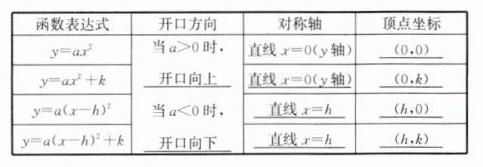 函数表达式 开口方向 对称轴 顶点坐标
y=ax² 当a>0时, 直线x=0(y轴) (0,0)
y=ax²+k 开口向上 直线x=0(y轴) (0,k)
y=a(x-h)² 当a<0时, 直线x=h (h,0)
y=a(x-h)²+k 开口向下 直线x=h (h,k)